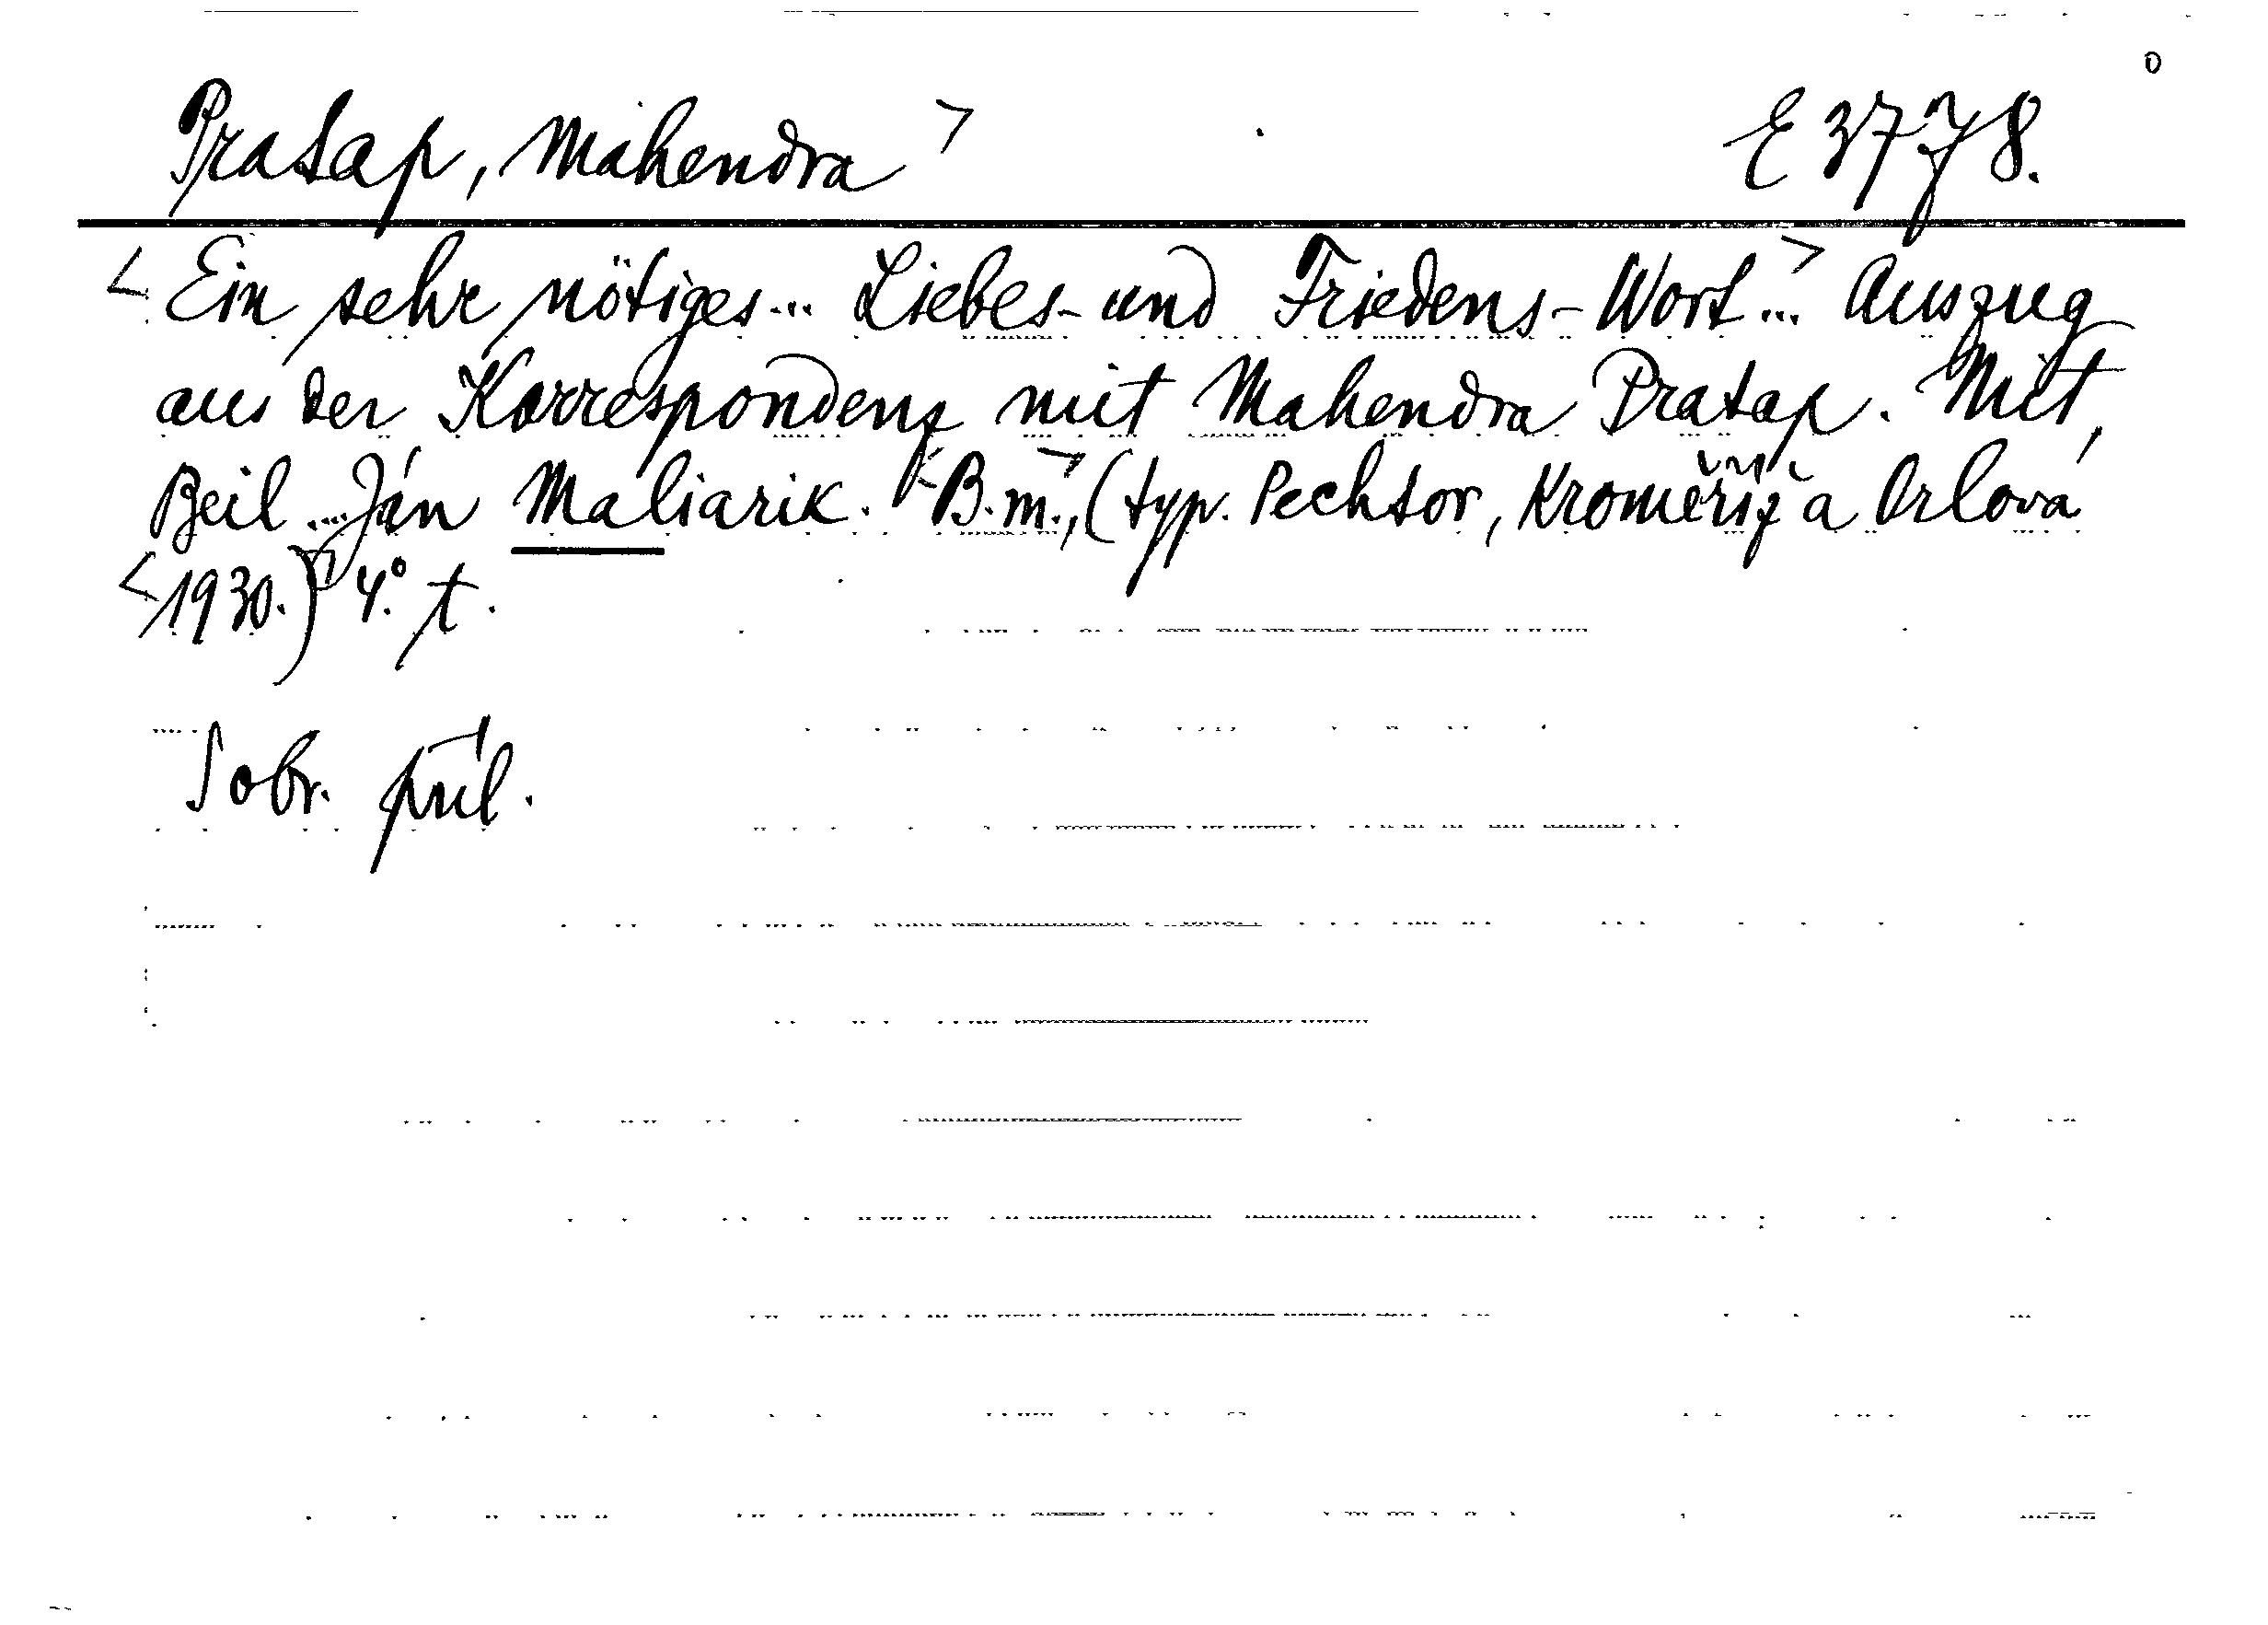 Pratap, Mahendra > E 3778.
< Ein sehr nötiges... Liebes- und Friedens-Wort...> Auszug
aus der Korrespondenz mit Mahendra Pratap. Mit
Beil... Ján Maliarik. <B. m.>, (typ. Pechtor, Kroměříž a Orlová
<1930.)> 4°. t.
1 obr. příl.